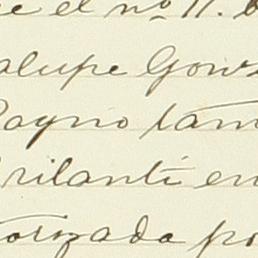 e el nº 11.
alupe Gonz
Payno tam
rilanti en
torzada po